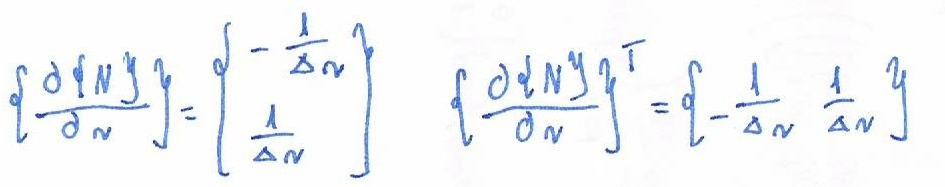 {∂{N}/∂r} = {-1/Δr 1/Δr} {∂{N}/∂r}ᵀ = {-1/Δr 1/Δr}